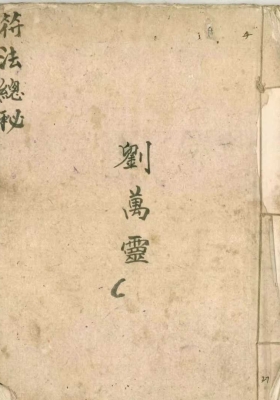 符法總秘
劉萬靈
C
27